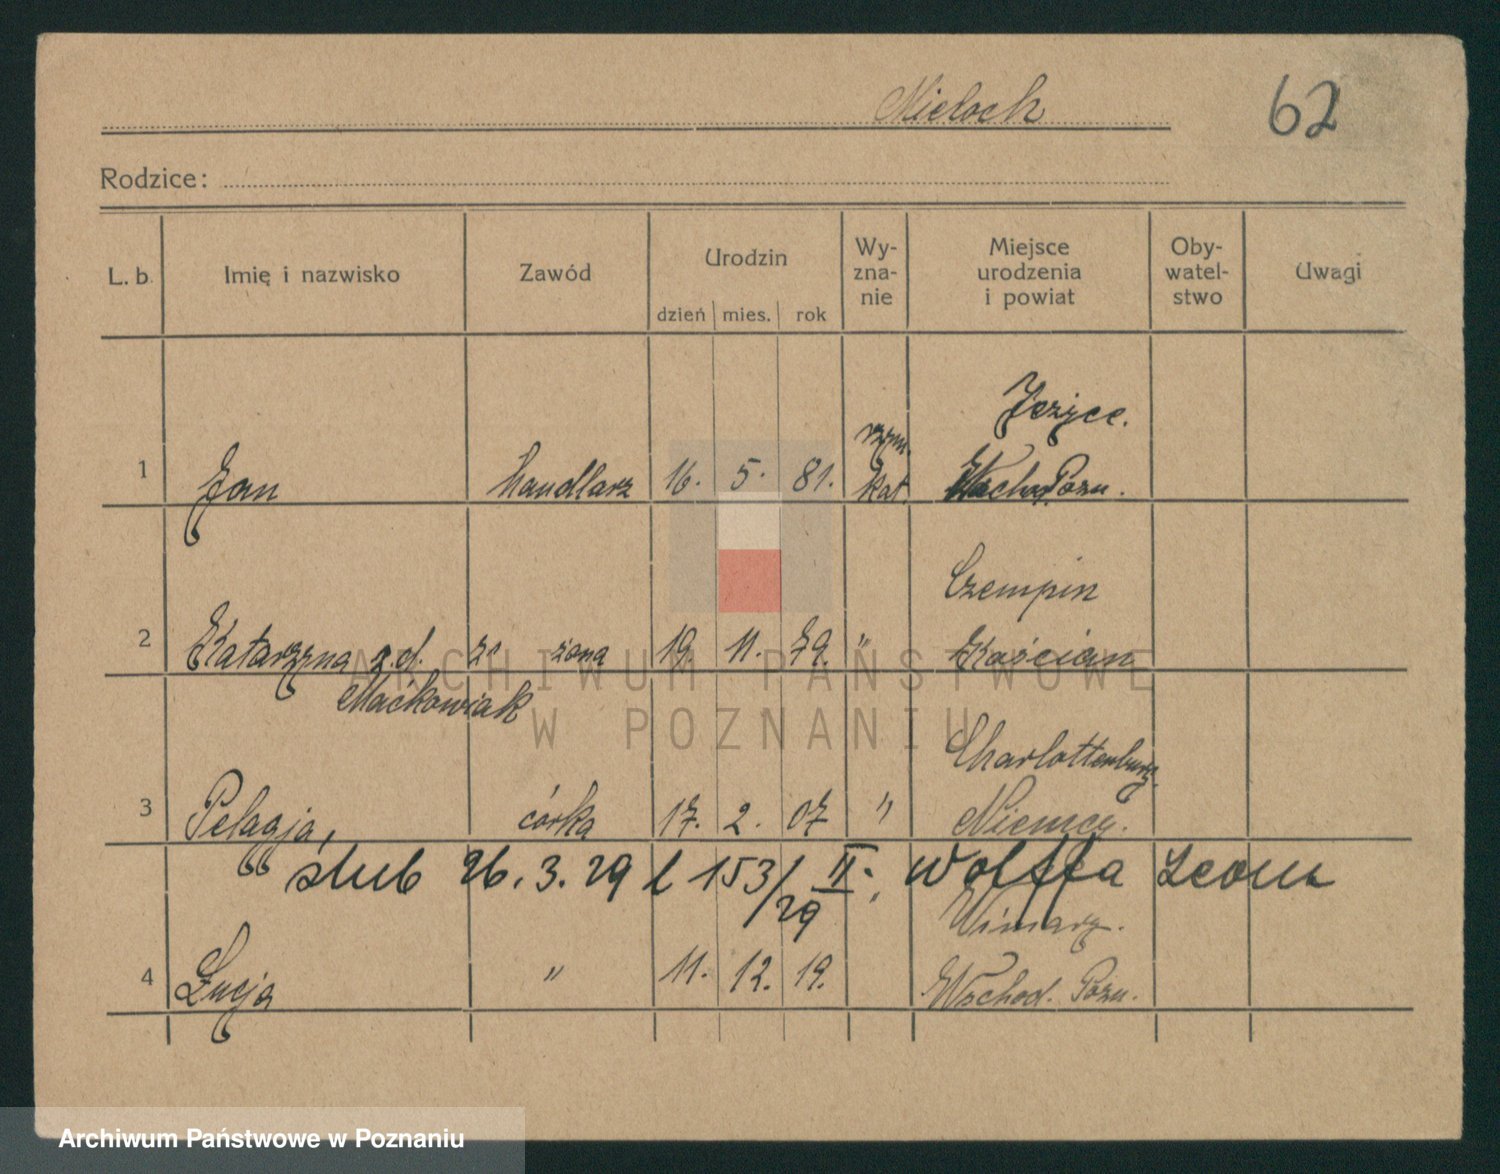 Mieloch 62
Rodzice:
L. b. Imię i nazwisko Zawód Urodzin dzień mies. rok Wy-zna-nie Miejsce urodzenia i powiat Oby-watel-stwo Uwagi
Jeżyce.
rzym.
1 Jan handlarz 16. 5. 81. kat. Wschod Pozn.
Czempin
2 Katarzyna z d. żona 19. 11. 79. " Kościan
Maćkowiak
ARCHIWUM PAŃSTWOWE
W POZNANIU
Charlottenburg.
3 Pelagja, córka 17. 2. 07 " Niemcy.
ślub 26. 3. 29 l 153/29 II. Wolffa Leona
Winiary.
4 Łucja " 11. 12. 19. " Wschod. Pozn.
Archiwum Państwowe w Poznaniu